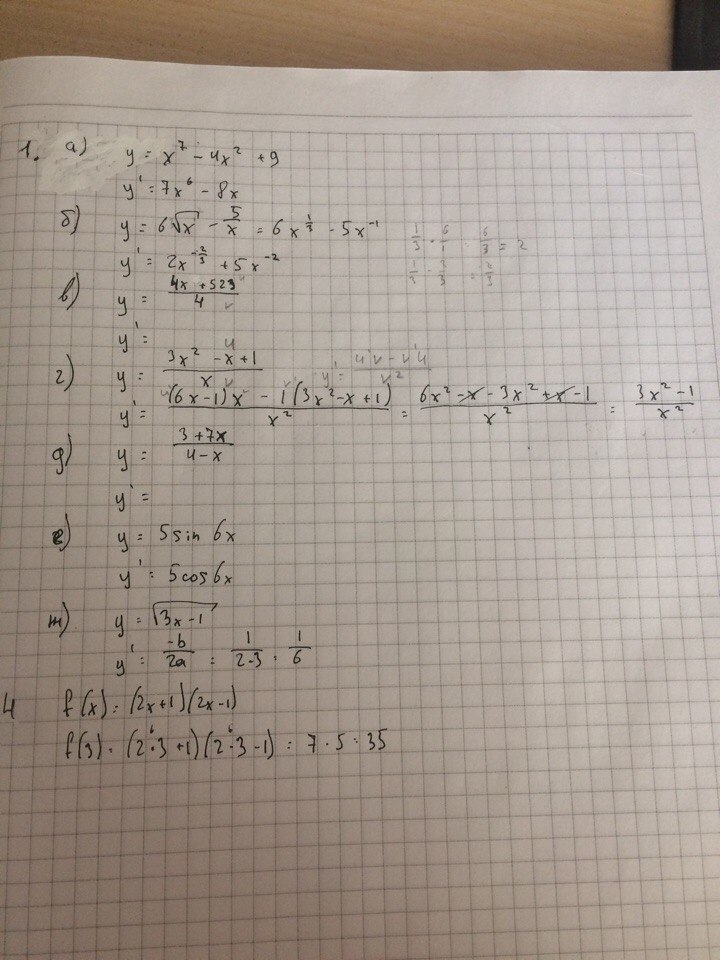 1. а) y = x⁷ - 4x² + 9
y' = 7x⁶ - 8x
б) y = 6√x - 5/x = 6x^(1/3) - 5x⁻¹ 1/3 · 6/1 = 6/3 = 2
y' = 2x^(-2/3) + 5x⁻² 1/3 - 3/3 = 2/3
в) y = (4x + 523)/4
y' =
г) y = (3x² - x + 1)/x y' = (u'v - v'u)/v²
y' = ((6x-1)x - 1(3x²-x+1))/x² = (6x² - x - 3x² + x - 1)/x² = (3x² - 1)/x²
д) y = (3+7x)/(4-x)
y' =
е) y = 5sin 6x
y' = 5cos6x
ж) y = √(3x-1)
y' = -b/2a = 1/(2·3) = 1/6
4 f(x) = (2x+1)(2x-1)
f(3) = (2·3+1)(2·3-1) = 7·5 = 35